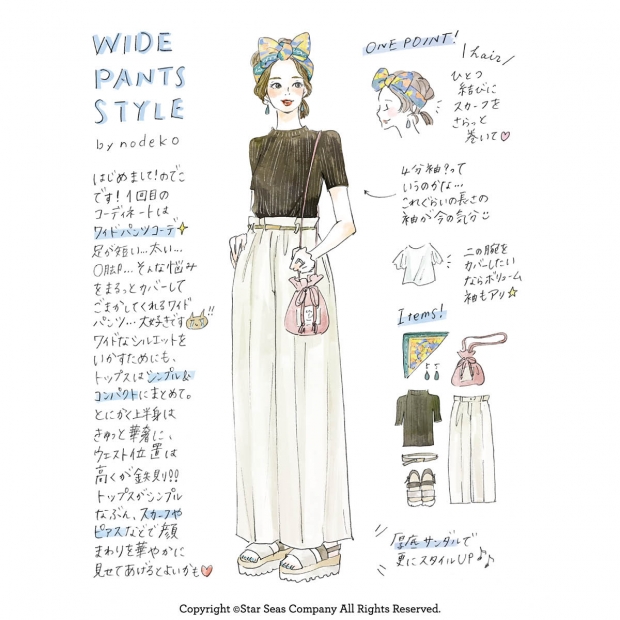 WIDE
PANTS
STYLE
by nodeko
はじめまして!のでこ
です!1回目の
コーディネートは
ワイドパンツコーデ
足が短い…太い…
O脚…そんな悩み
をまるっとカバーして
ごまかしてくれるワイド
パンツ…大好きです!!
ワイドなシルエットを
いかすためにも、
トップスはシンプル&
コンパクトにまとめて。
とにかく上半身は
きゅっと華奢に、
ウエスト位置は
高くが鉄則!!
トップスがシンプル
なぶん、スカーフや
ピアスなどで顔
まわりを華やかに
見せてあげるとよいかも
ONE POINT!
hair
ひとつ
結びに
スカーフを
さらっと
巻いて
4分袖?って
いうのかな…
これぐらいの長さの
袖が今の気分
二の腕を
カバーしたい
ならボリューム
袖もアリ
Items!
厚底サンダルで
更にスタイルUP
Copyright ©Star Seas Company All Rights Reserved.